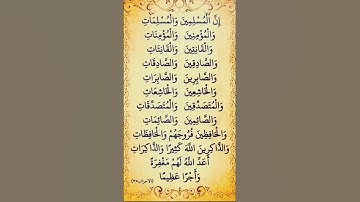 إِنَّ الْمُسْلِمِينَ وَالْمُسْلِمَاتِ
وَالْمُؤْمِنِينَ وَالْمُؤْمِنَاتِ
وَالْقَانِتِينَ وَالْقَانِتَاتِ
وَالصَّادِقِينَ وَالصَّادِقَاتِ
وَالصَّابِرِينَ وَالصَّابِرَاتِ
وَالْخَاشِعِينَ وَالْخَاشِعَاتِ
وَالْمُتَصَدِّقِينَ وَالْمُتَصَدِّقَاتِ
وَالصَّائِمِينَ وَالصَّائِمَاتِ
وَالْحَافِظِينَ فُرُوجَهُمْ وَالْحَافِظَاتِ
وَالذَّاكِرِينَ اللَّهَ كَثِيرًا وَالذَّاكِرَاتِ
أَعَدَّ اللَّهُ لَهُمْ مَغْفِرَةً
وَأَجْرًا عَظِيمًا
(الأحزاب:٣٥)